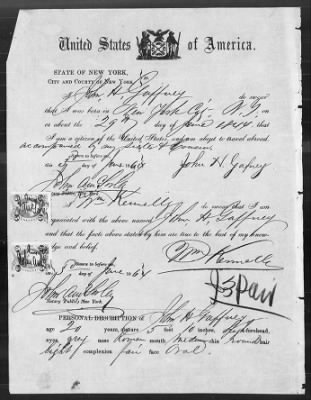 United States of America.
STATE OF NEW YORK,
CITY AND COUNTY OF NEW YORK,
I John H Gaffney do swear
that I was born in New York City N.Y. on
or about the 29th day of June 1844 that
I am a citizen of the United States, and am about to travel abroad.
accompanied by my sister &
Sworn to before me
day of June 64
John H Gafney
Wm Kennelly
do swear that I am
acquainted with the above named John H. Gaffney
and that the facts above stated by him are true to the best of my know-
edge and belief.
Sworn to before me
day of June 64
Notary Public New York.
$3 Paid
PERSONAL DESCRIPTION OF John H Gaffney
age 20 years, stature 5 feet 10 inches, forehead,
eyes grey nose Roman mouth medium chin round hair
light complexion fair face Oval